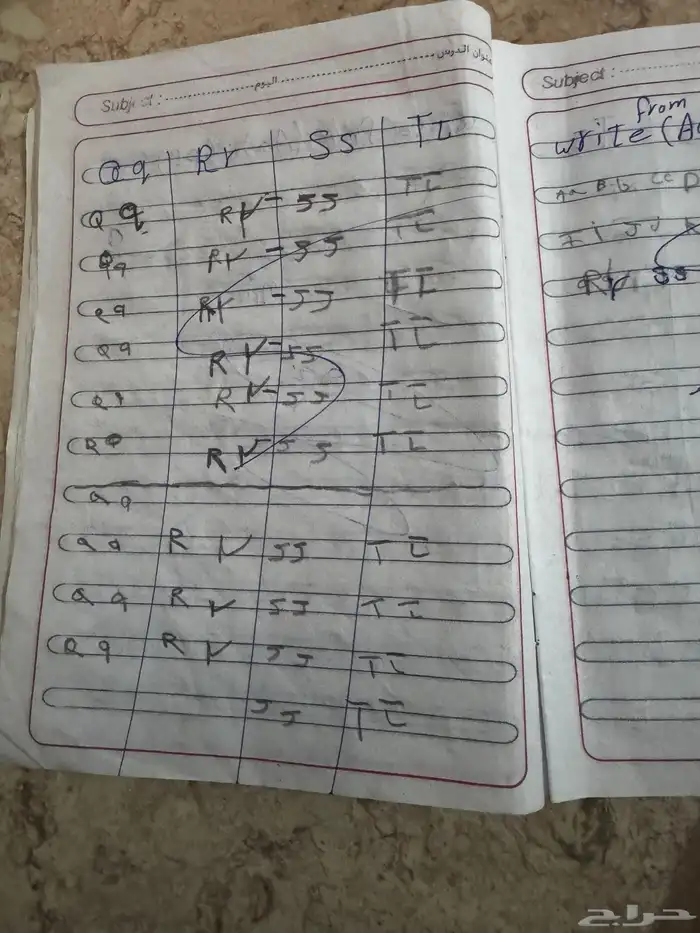 Subject : اليوم عنوان الدرس
Qq Rr Ss Tt
Qq Rr ss Tt
Qq Rr ss Tt
Qq Rr ss Tt
Qq Rr ss Tt
Qq Rr ss Tt
Qq Rr ss Tt
Qq
Qq Rr ss Tt
Qq Rr ss Tt
Qq Rr ss Tt
ss Tt
Subject :
from
write (A
Aa Bb Cc D
Ii Jj
Rr ss
حراج